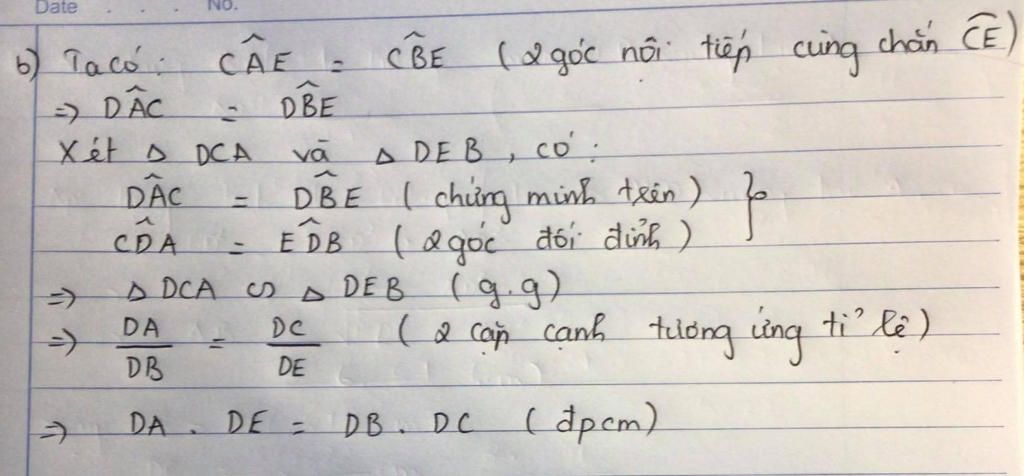 Date . . . No.
b) Ta có: $\widehat{CAE}$ = $\widehat{CBE}$ (2 góc nội tiếp cùng chắn $\overset{\frown}{CE}$)
=> $\widehat{DAC}$ = $\widehat{DBE}$
Xét Δ DCA và Δ DEB, có:
$\widehat{DAC}$ = $\widehat{DBE}$ (chứng minh trên) }
$\widehat{CDA}$ = $\widehat{EDB}$ (2 góc đối đỉnh)
=> Δ DCA ∽ Δ DEB (g.g)
=> $\frac{DA}{DB}$ = $\frac{DC}{DE}$ (2 cặp cạnh tương ứng tỉ lệ)
=> DA . DE = DB . DC (đpcm)